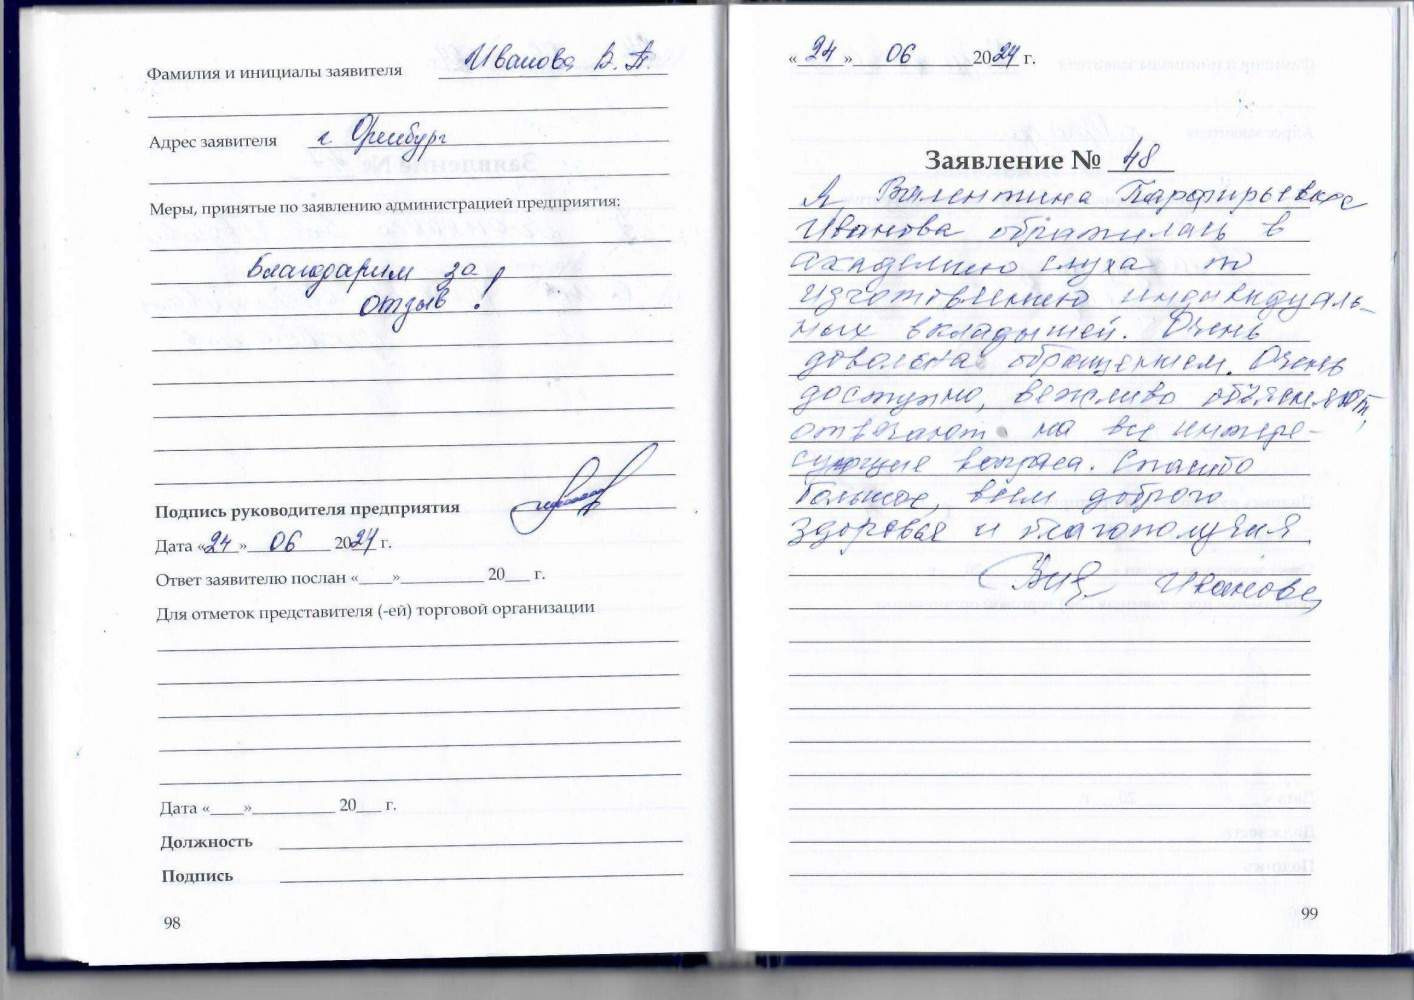 Фамилия и инициалы заявителя Иванова В. П.
Адрес заявителя г. Оренбург
Меры, принятые по заявлению администрацией предприятия:
Благодарим за
отзыв!
Подпись руководителя предприятия
Дата «24» 06 2024 г.
Ответ заявителю послан «____»__________ 20___ г.
Для отметок представителя (-ей) торговой организации
Дата «____»__________ 20___ г.
Должность
Подпись
98
«24» 06 2024 г.
Заявление № 48
Я Валентина Парфирьевна
Иванова обратилась в
академию слуха по
изготовлению индивидуаль-
ных вкладышей. Очень
довольна обращением. Очень
доступно, вежливо объясняют,
отвечают на все интере-
сующие вопроса. Спасибо
большое, всем доброго
здоровья и благополучия
Иванова
99